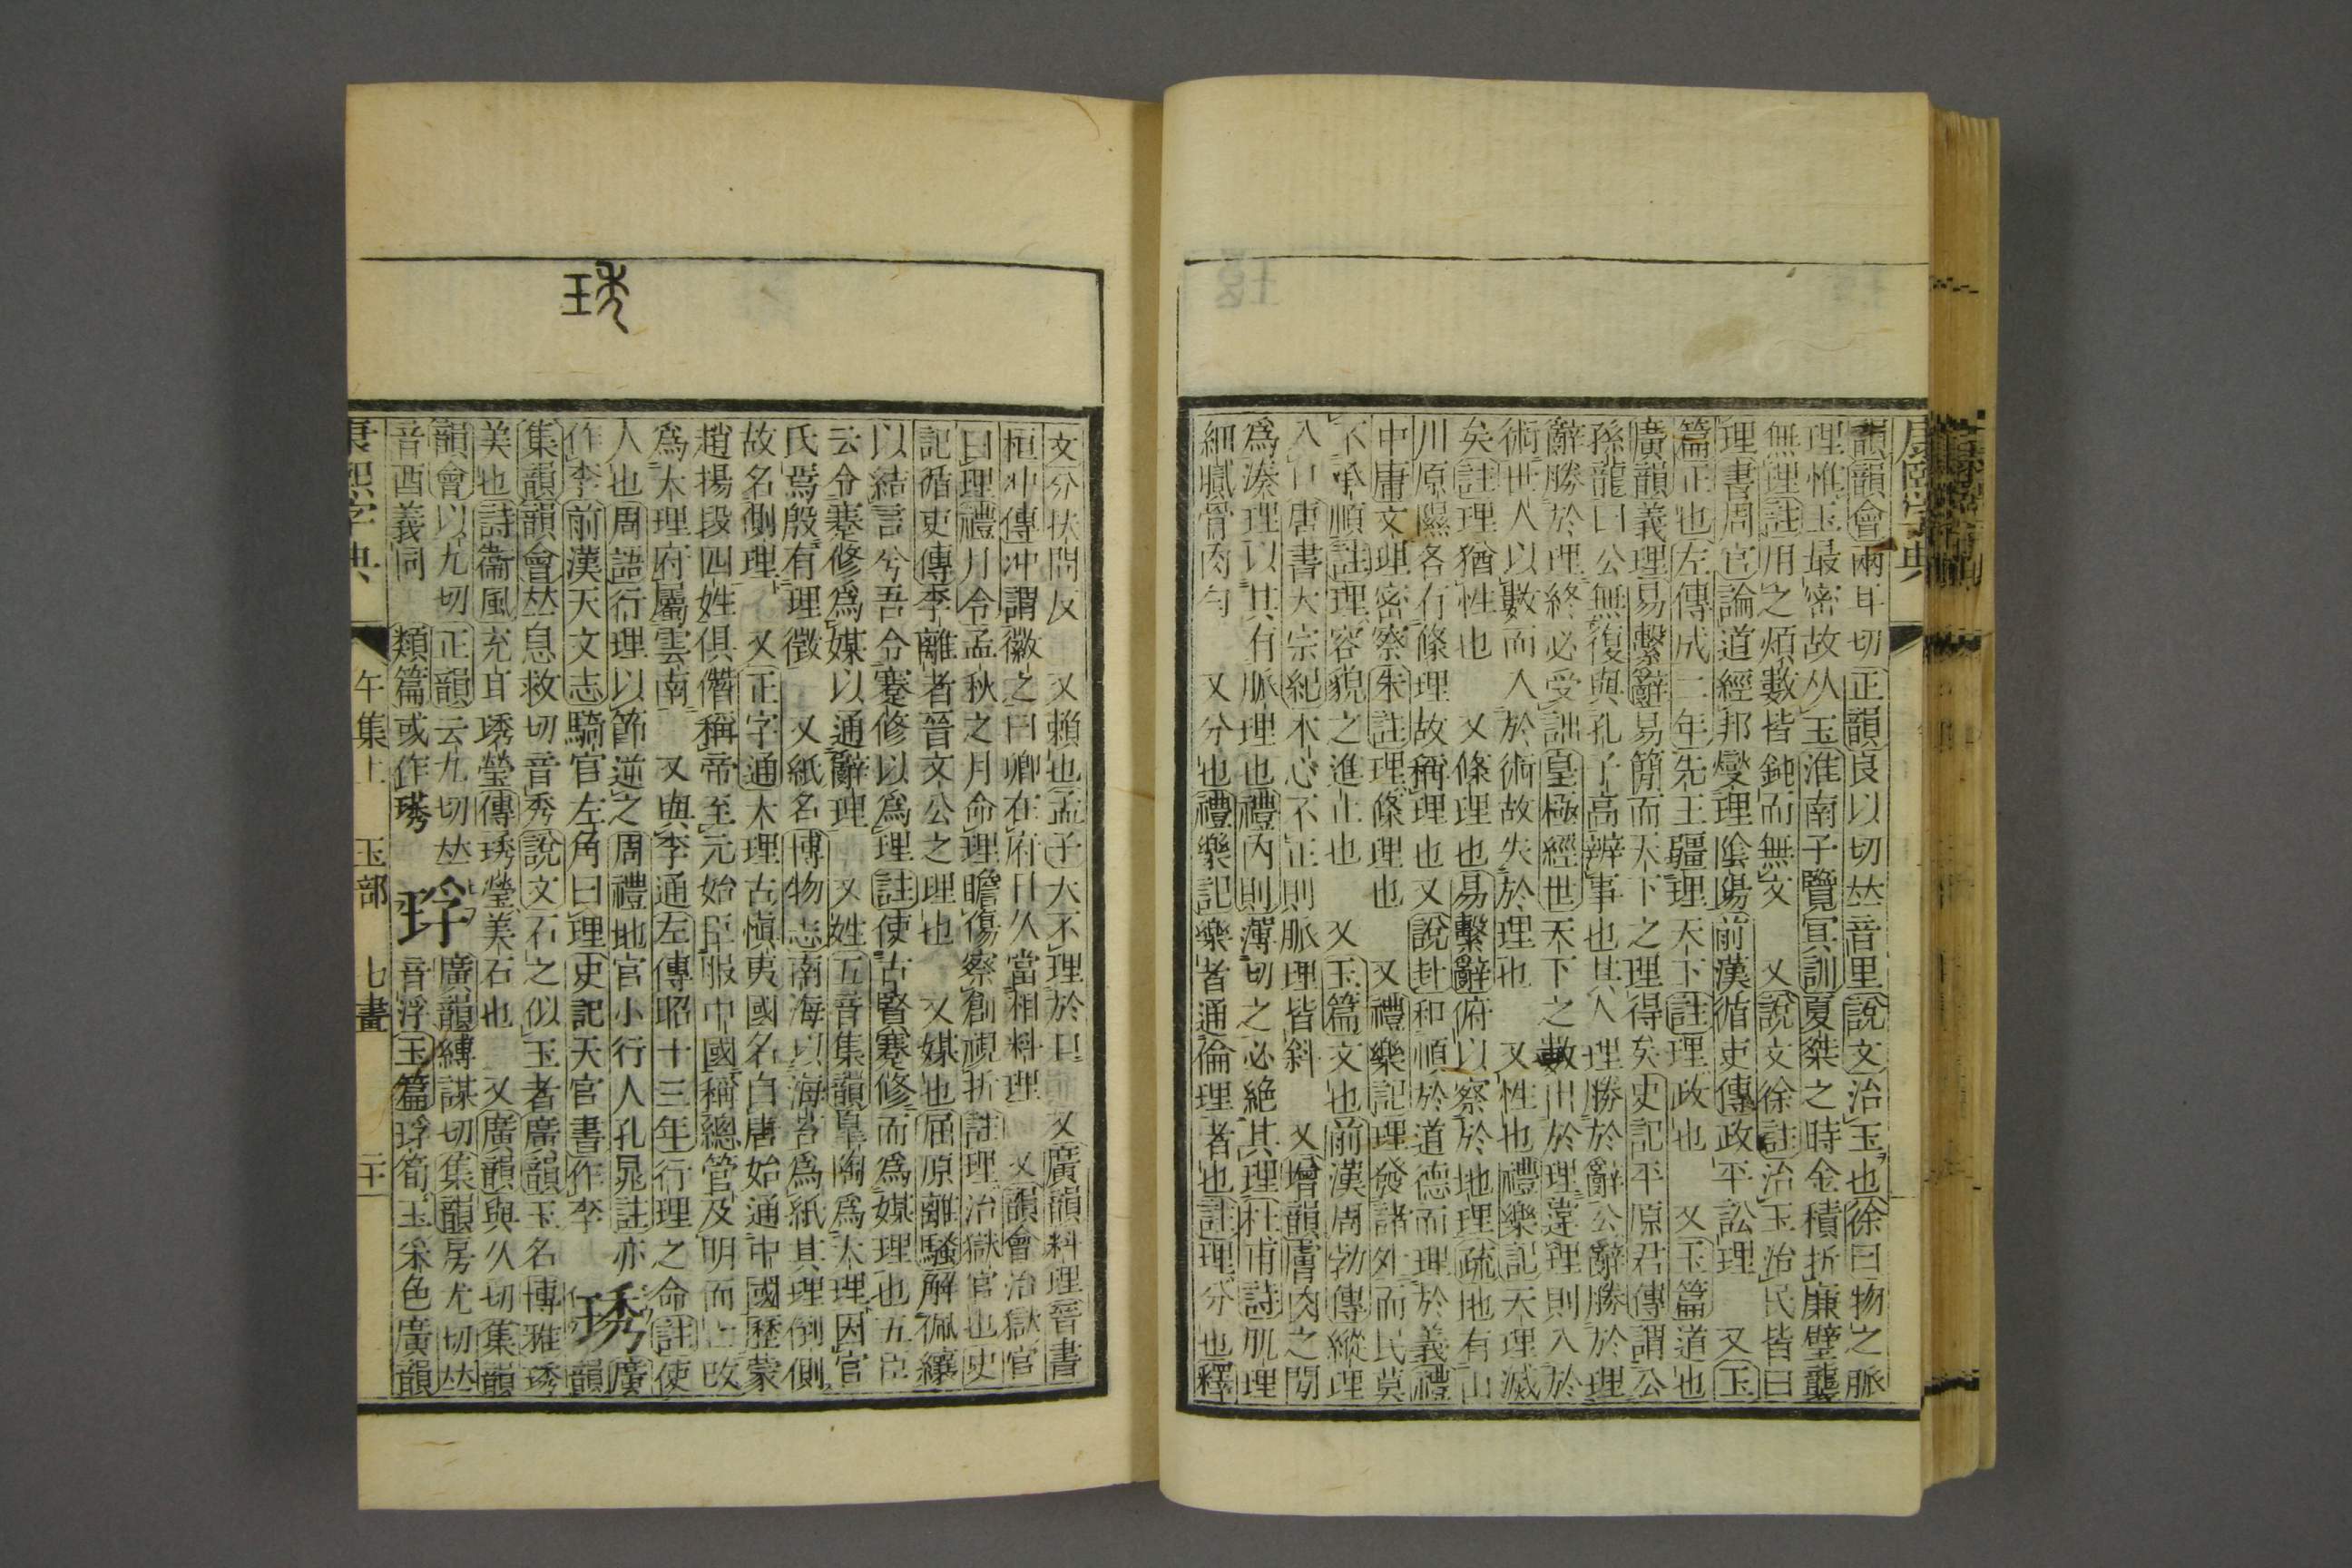 韻韻會兩耳切正韻良以切𠀤音里說文治玉也徐曰物之脈
理惟玉最密故从玉淮南子覽冥訓夏桀之時金積折廉璧襲
無理註用之煩數皆鈍而無文 又說文徐註治玉治民皆曰
理書周官論道經邦燮理隂陽前漢循吏傳政平訟理 又玉
篇正也左傳成二年先王疆理天下註理政也 又玉篇道也
廣韻義理易繫辭易簡而天下之理得矣史記平原君傳謂公
孫龍曰公無復與孔子高辨事也其人理勝於辭公辭勝於理
辭勝於理終必受詘皇極經世天下之數出於理違理則入於
術世人以數而入於術故失於理也 又性也禮樂記天理滅
矣註理猶性也 又條理也易繫辭俯以察於地理疏地有山
川原隰各有條理故稱理也又說卦和順於道德而理於義禮
中庸文理密察朱註理條理也 又禮樂記理發諸外而民莫
不承順註理容貌之進止也 又玉篇文也前漢周勃傳縱理
入口唐書太宗紀木心不正則脈理皆斜 又增韻膚肉之閒
爲湊理以其有脈理也禮內則薄切之必絶其理杜甫詩肌理
細膩骨肉勻 又分也禮樂記樂者通倫理者也註理分也釋
康熙字典
琇
文分扶問反 又賴也孟子大不理於口 又廣韻料理晉書
桓冲傳冲謂徽之曰卿在府日久當相料理 又韻會治獄官
曰理禮月令孟秋之月命理瞻傷察創視折註理治獄官也史
記循吏傳李離者晉文公之理也 又媒也屈原離騷解佩纕
以結言兮吾令蹇修以爲理註使古賢蹇修而爲媒理也五臣
云令蹇修爲媒以通辭理 又姓五音集韻皐陶爲大理因官
氏焉殷有理徵 又紙名博物志南海以海苔爲紙其理倒側
故名側理 又正字通大理古愼夷國名白唐始通中國歷蒙
趙揚段四姓俱僭稱帝至元始臣服中國稱總管及明而上改
爲大理府屬雲南 又與李通左傳昭十三年行理之命註使
人也周語行理以節逆之周禮地官小行人孔晁註亦 琇 廣
作李前漢天文志騎官左角曰理史記天官書作李 韻
集韻韻會𠀤息救切音秀說文石之似玉者廣韻玉名博雅琇
美也詩衞風充耳琇瑩傳琇瑩美石也 又廣韻與久切集韻
韻會以九切正韻云九切𠀤 琈 廣韻縛謀切集韻房尤切𠀤
音酉義同 類篇或作璓 音浮玉篇琈筍玉采色廣韻
康熙字典 午集上 玉部 七畫 二十一